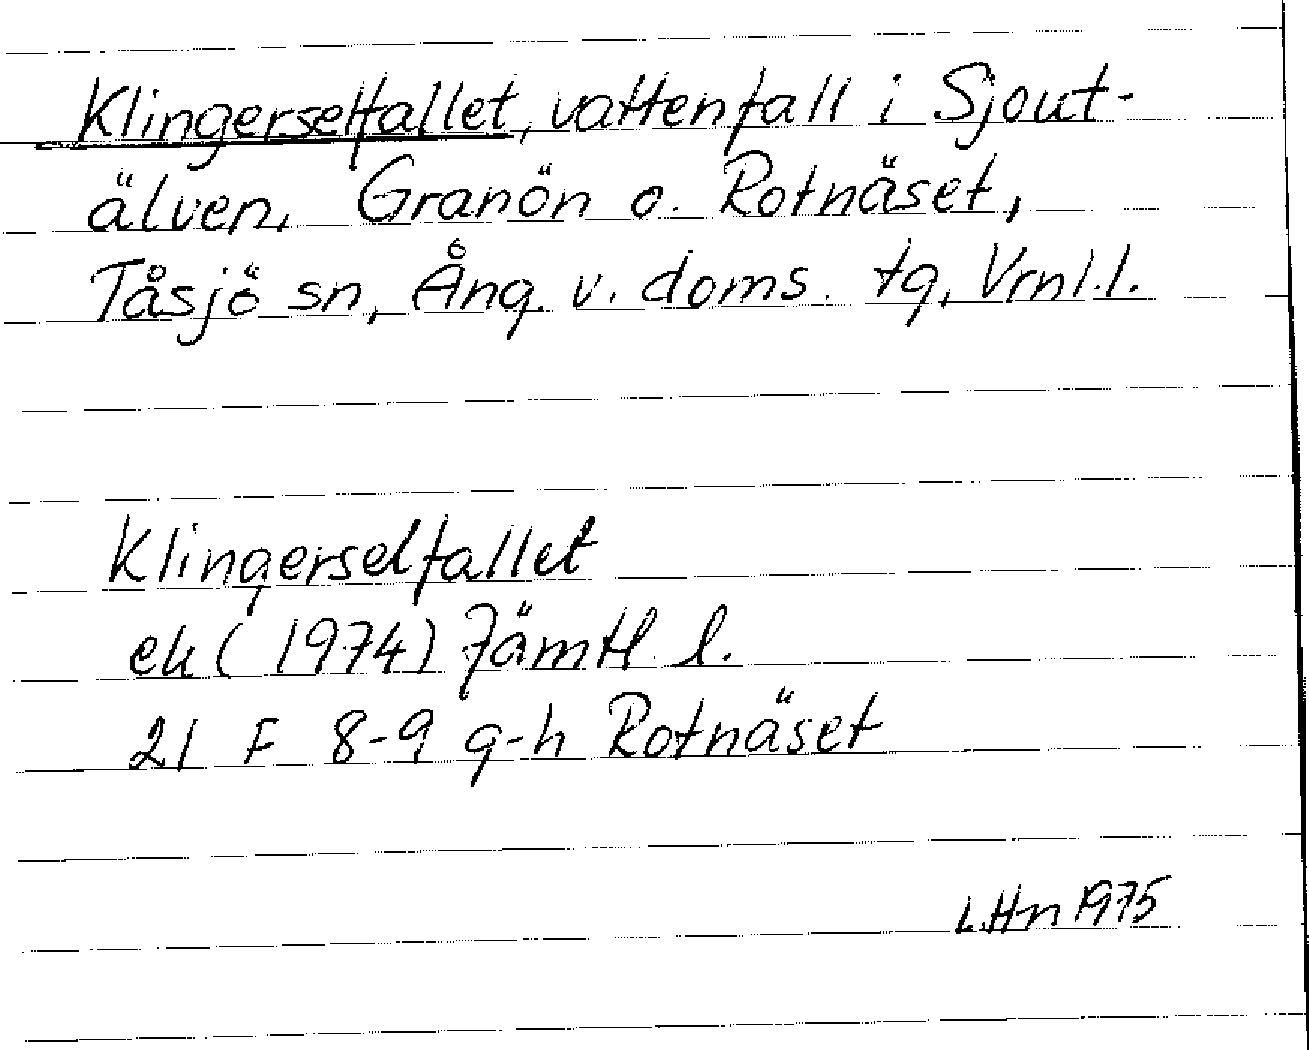 Klingerselfallet, vattenfall i Sjout-
älven, Granön o. Rotnäset,
Tåsjö sn, Ång. v. doms. tg, Vrnl.l.
Klingerselfallet
ek (1974) Jämtl. l.
21 F 8-9 g-h Rotnäset
L.Hn 1975